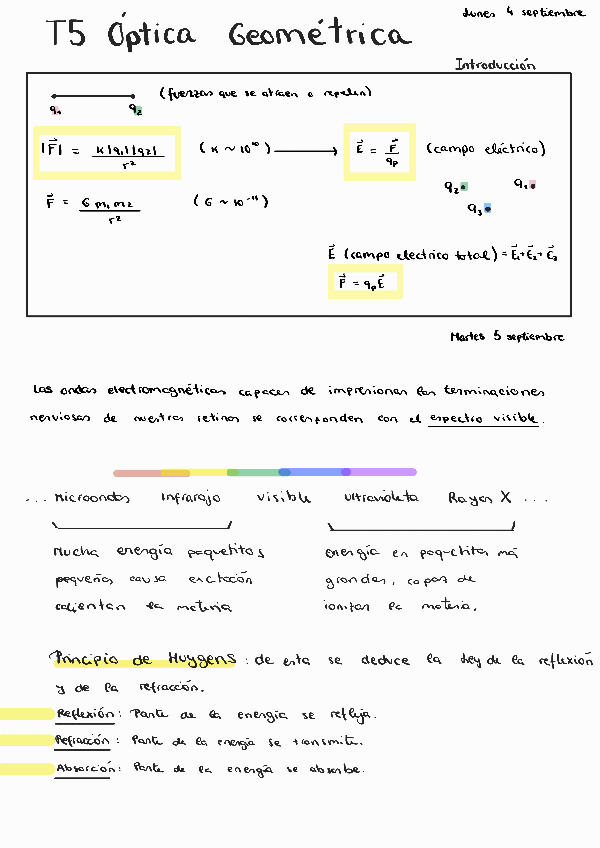 Lunes 4 septiembre
T5 Óptica Geométrica
Introducción
(fuerzas que se atraen o repelen)
q₁ q₂
|F⃗| = K|q₁||q₂| / r² (K ~ 10¹⁰) → E⃗ = F⃗ / qₚ (campo eléctrico)
q₂ q₁
q₃
F⃗ = G m₁ m₂ / r² (G ~ 10⁻¹¹)
E⃗ (campo electrico total) = E⃗₁+E⃗₂+E⃗₃
F⃗ = qₚE⃗
Martes 5 septiembre
Las ondas electromagnéticas capaces de impresionar las terminaciones
nerviosas de nuestras retinas se corresponden con el espectro visible.
... Microondas Infrarojo visible ultravioleta Rayos X ...
Mucha energía paquetitos energía en paquetitos más
pequeños causa excitación grandes, capas de
calientan la materia ionizar la materia.
Principio de Huygens : de esta se deduce la Ley de la reflexión
y de la refracción.
Reflexión : Parte de la energia se refleja.
Refracción : Parte de la energía se transmite.
Absorción : Parte de la energía se absorbe.